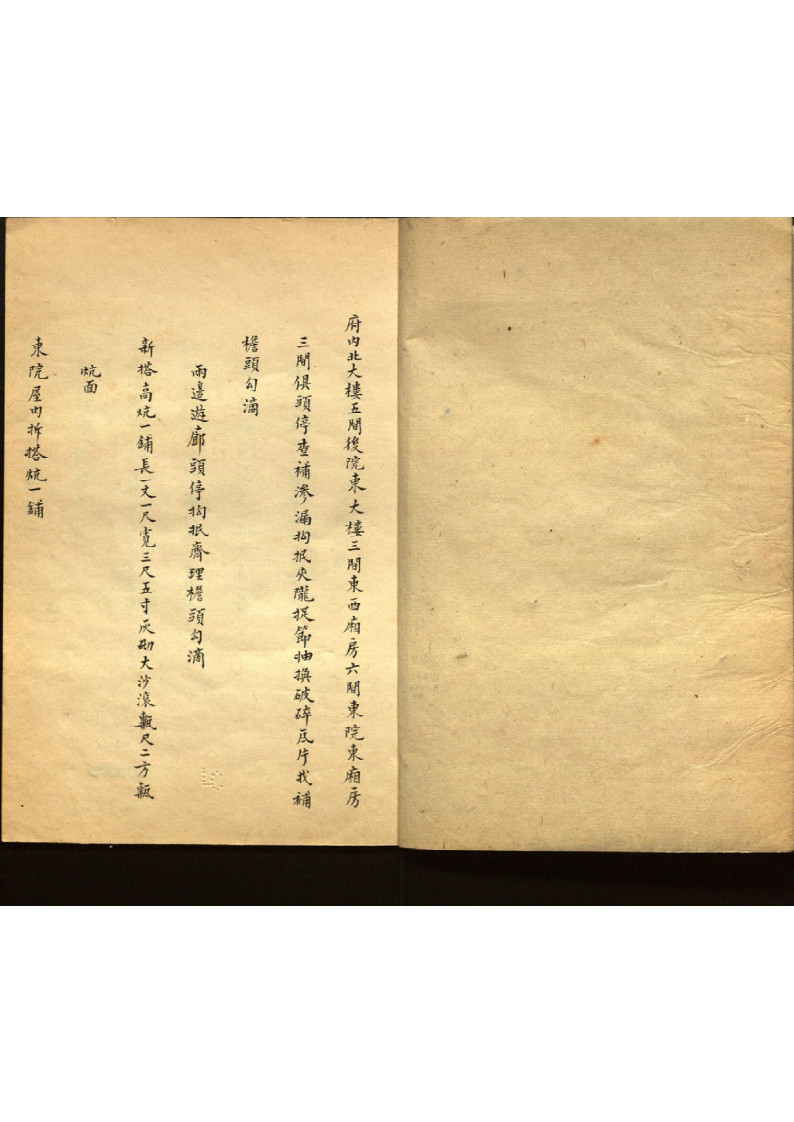 府内北大樓五間後院東大樓三間東西廂房六間東院東廂房
三間俱頭停查補滲漏抅抿夾隴捉節抽換破碎瓦片找補
檐頭勾滴
兩邊遊廊頭停抅抿齊理檐頭勾滴
新搭高炕一鋪長一丈一尺寬三尺五寸灰砌大沙滚甎尺二方甎
炕面
東院屋内拆搭炕一鋪